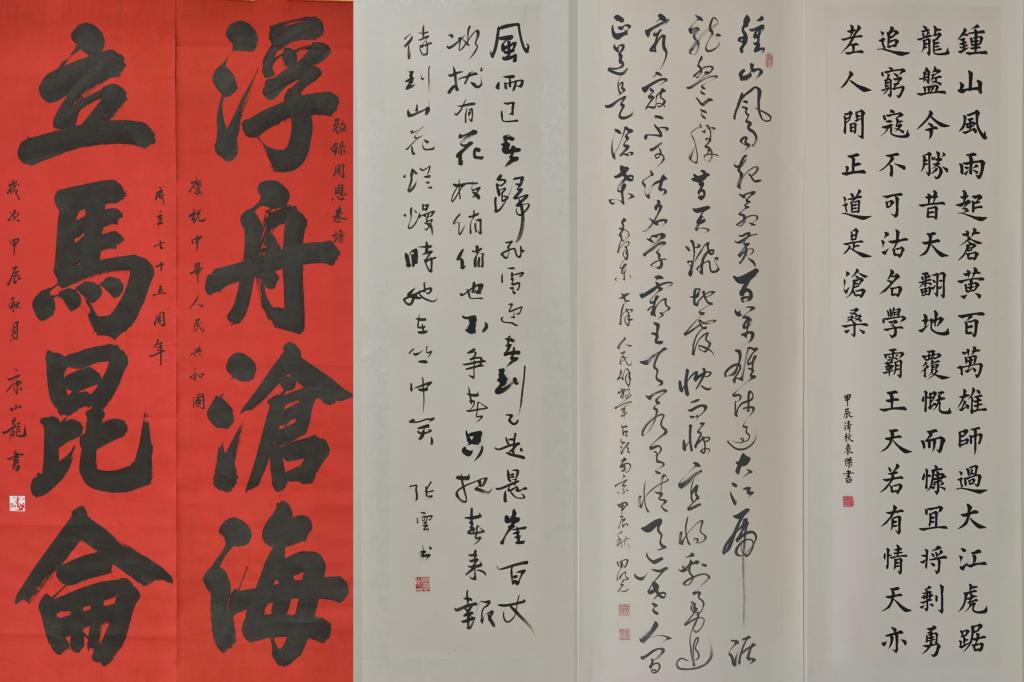 鍾山風雨起蒼黃百萬雄師過大江虎踞
龍盤今勝昔天翻地覆慨而慷冝將剩勇
追窮寇不可沽名學霸王天若有情天亦
老人間正道是滄桑
甲辰清秋袁傑書
鍾山風雨起蒼黃百萬雄師過大江虎踞
龍盤今勝昔天翻地覆慨而慷宜將剩勇追
窮寇不可沽名學霸王天若有情天亦老人間
正道是滄桑 毛澤東七律 人民解放軍占領南京 甲辰秋
風雨送春歸飛雪迎春到已是懸崖百丈
冰犹有花枝俏俏也不爭春只把春來報
待到山花爛熳時她在丛中笑 张雲书
敬録周恩来語
浮舟滄海
慶祝中華人民共和國
成立七十五周年
立馬昆侖
歲次甲辰秋月 康小龍書